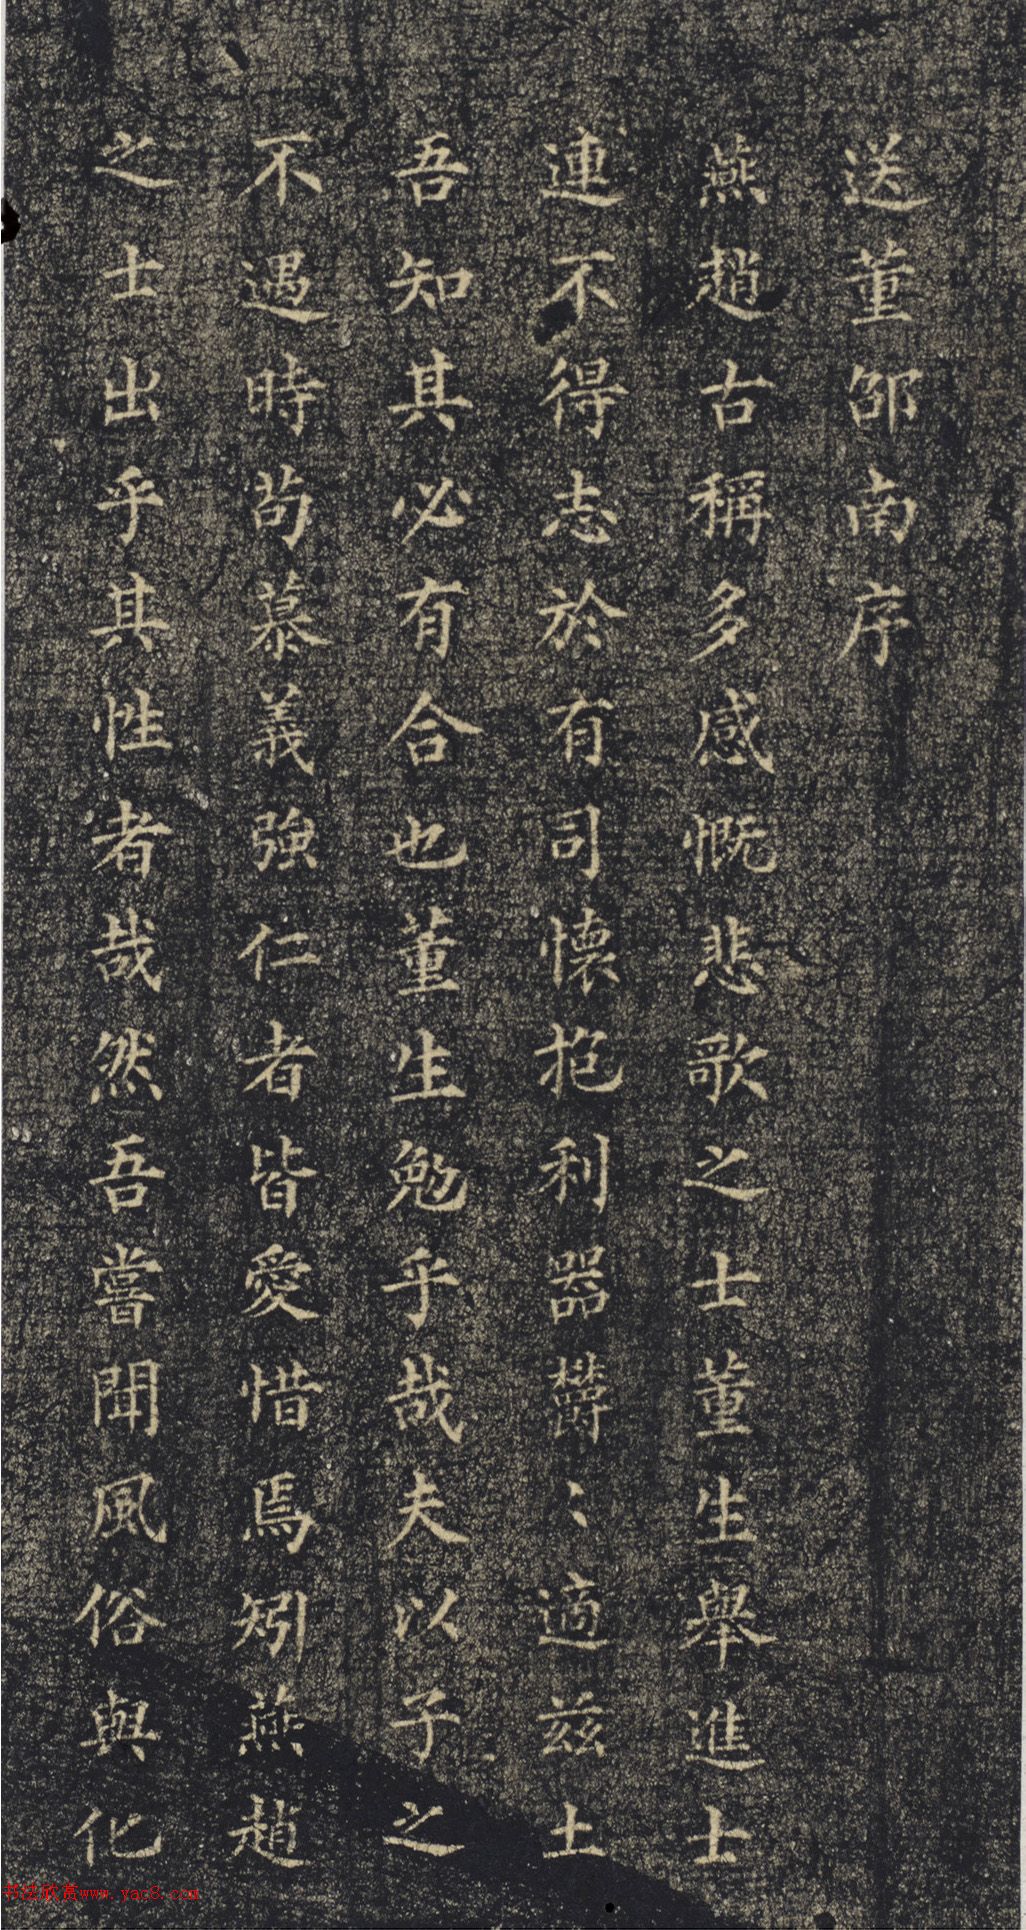 送董邵南序
燕趙古稱多感慨悲歌之士董生舉進士
連不得志於有司懷抱利器欝〻適兹土
吾知其必有合也董生勉乎哉夫以子之
不遇時苟慕義強仁者皆愛惜焉矧燕趙
之士出乎其性者哉然吾嘗聞風俗與化
书法欣赏www.yac8.com